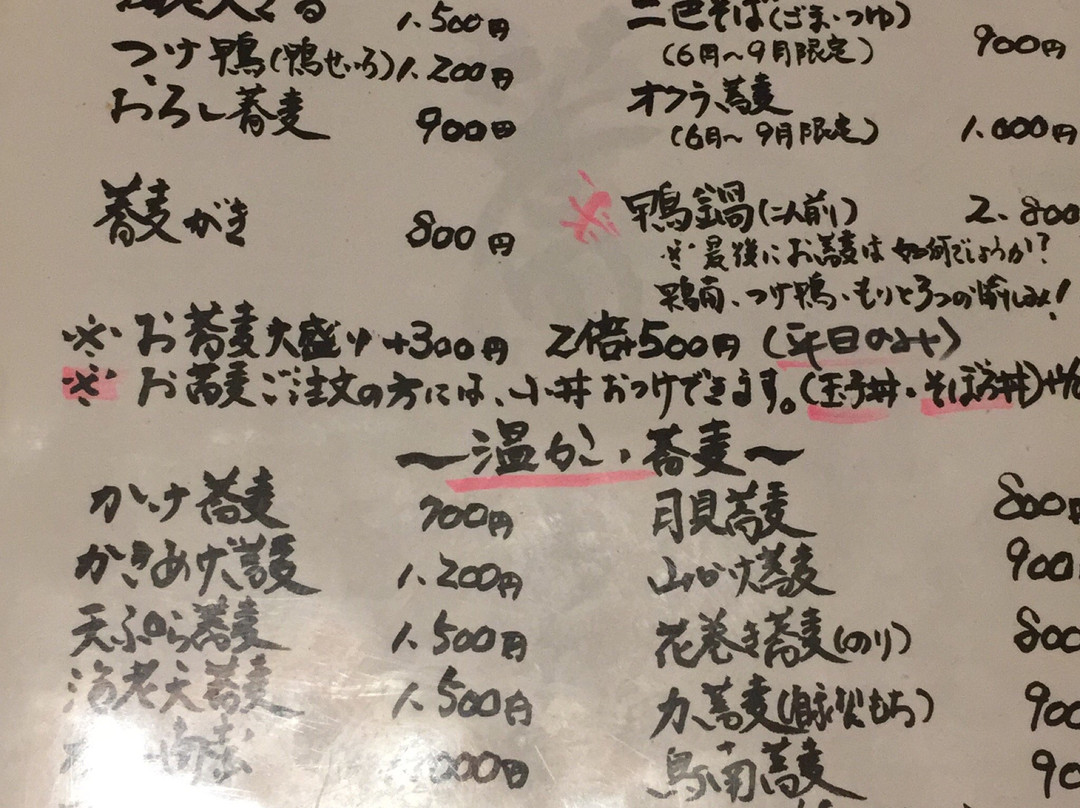 1.500円
つけ鴨(鴨せいろ) 1.200円
おろし蕎麦 900円
蕎麦がき 800円
二色そば(ごま・つゆ) 900円
(6月〜9月限定)
オクラ蕎麦
(6月〜9月限定) 1.000円
※ 鴨鍋(二人前) 2.800
※最後にお蕎麦は如何でしょうか?
鴨南、つけ鴨、もりと3つのお愉しみ!
※お蕎麦大盛り+300円 2倍+500円(平日のみ)
※お蕎麦ご注文の方には、小丼おつけできます。(玉子丼・そぼろ丼)
〜温かい蕎麦〜
かけ蕎麦 700円
かきあげ蕎麦 1.200円
天ぷら蕎麦 1.500円
海老天蕎麦 1.500円
000円
月見蕎麦 800円
山かけ蕎麦 900
花巻き蕎麦(のり) 800
力蕎麦(自家製もち) 900
鳥南蕎麦 90